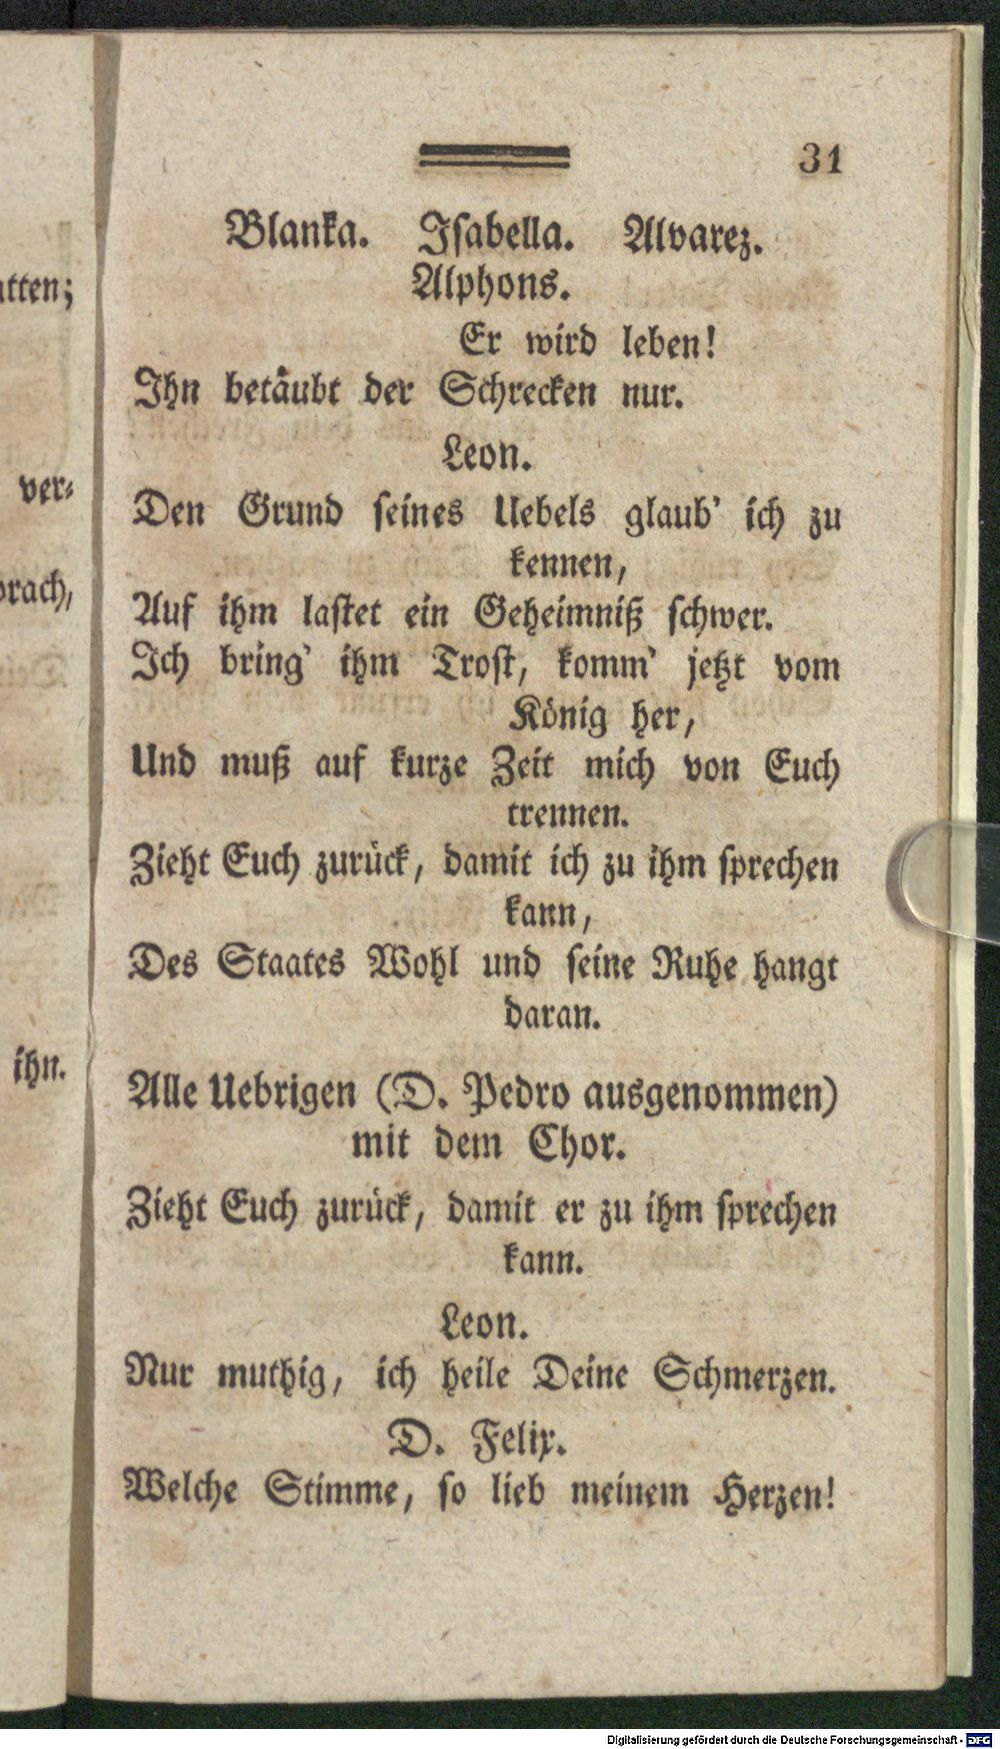 31
Blanka. Isabella. Alvarez.
Alphons.
Er wird leben!
Ihn betäubt der Schrecken nur.
Leon.
Den Grund seines Uebels glaub' ich zu
kennen,
Auf ihm lastet ein Geheimniß schwer.
Ich bring' ihm Trost, komm' jetzt vom
König her,
Und muß auf kurze Zeit mich von Euch
trennen.
Zieht Euch zurück, damit ich zu ihm sprechen
kann,
Des Staates Wohl und seine Ruhe hangt
daran.
Alle Uebrigen (D. Pedro ausgenommen)
mit dem Chor.
Zieht Euch zurück, damit er zu ihm sprechen
kann.
Leon.
Nur muthig, ich heile Deine Schmerzen.
D. Felix.
Welche Stimme, so lieb meinem Herzen!
ver-
ihn.
Digitalisierung gefördert durch die Deutsche Forschungsgemeinschaft - DFG